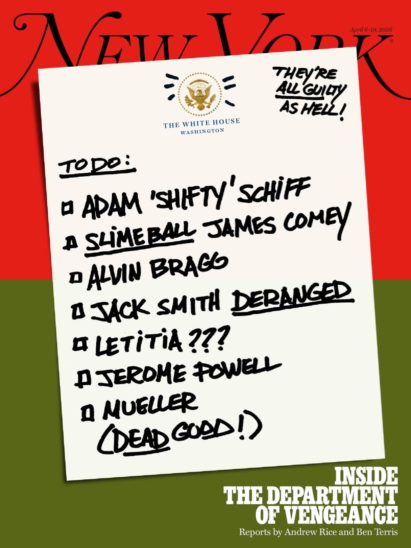 NEW YORK
April 6–19, 2026
THEY'RE
ALL GUILTY
AS HELL!
THE WHITE HOUSE
WASHINGTON
TO DO:
ADAM 'SHIFTY' SCHIFF
SLIMEBALL JAMES COMEY
ALVIN BRAGG
JACK SMITH DERANGED
LETITIA ???
JEROME POWELL
MUELLER
(DEAD GOOD!)
INSIDE
THE DEPARTMENT
OF VENGEANCE
Reports by Andrew Rice and Ben Terris